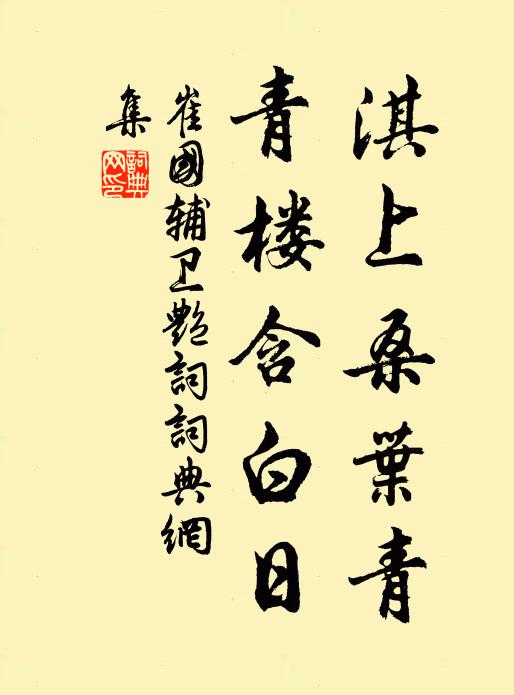 淇上桑葉青
青楼含白日
崔國辅卫艷詞詞典網
集
詞典
网印